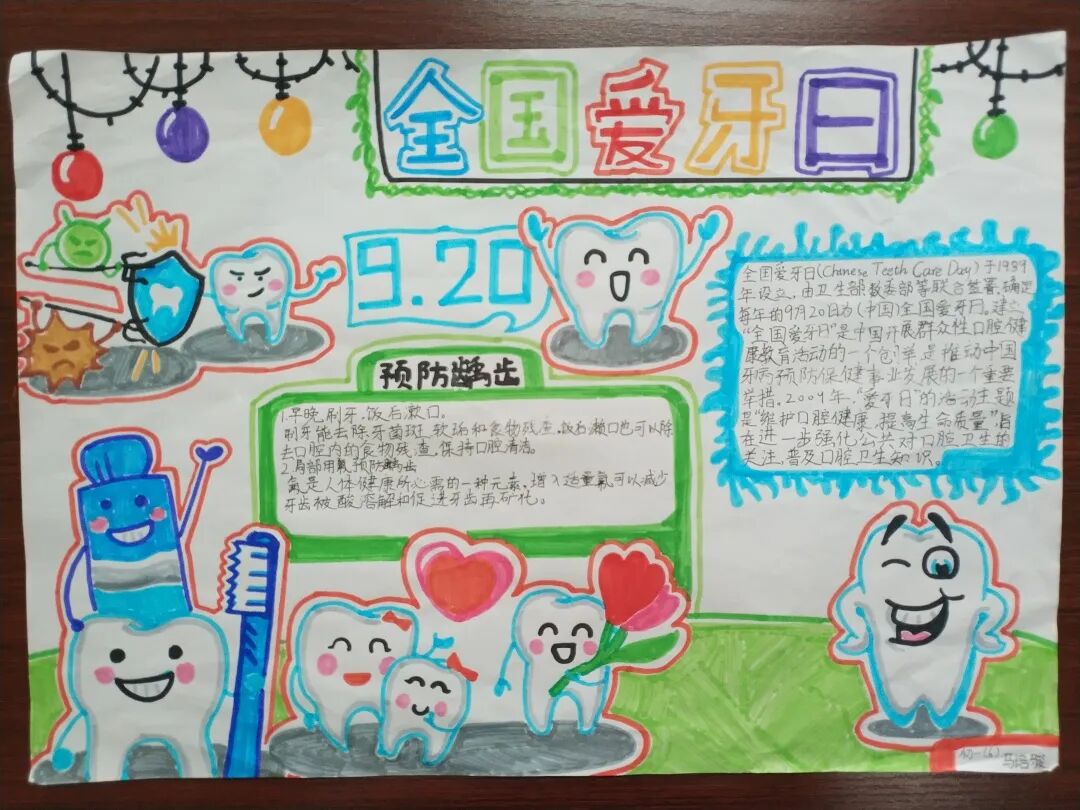 全国爱牙日
9.20
全国爱牙日(Chinese Teeth Care Day)于1989
年设立,由卫生部教委部等联合签署,确定
每年的9月20日为(中国)全国爱牙日。建立
“全国爱牙日”是中国开展群众性口腔健
康教育活动的一个创举是推动中国
牙病预防保健事业发展的一个重要
举措。2009年,“爱牙日”的活动主题
是“维护口腔健康,提高生命质量”,旨
在进一步强化公共对口腔卫生的
关注,普及口腔卫生知识。
预防龋齿
1.早晚,刷牙,饭后,漱口。
刷牙能去除牙菌斑,软垢和食物残渣,饭后漱口也可以除
去口腔内的食物残渣,保持口腔清洁。
2.局部用氟预防龋齿
氟是人体健康所必需的一种元素,增入适量氟可以减少
牙齿被酸溶解和促进牙齿再矿化。
初一(6)